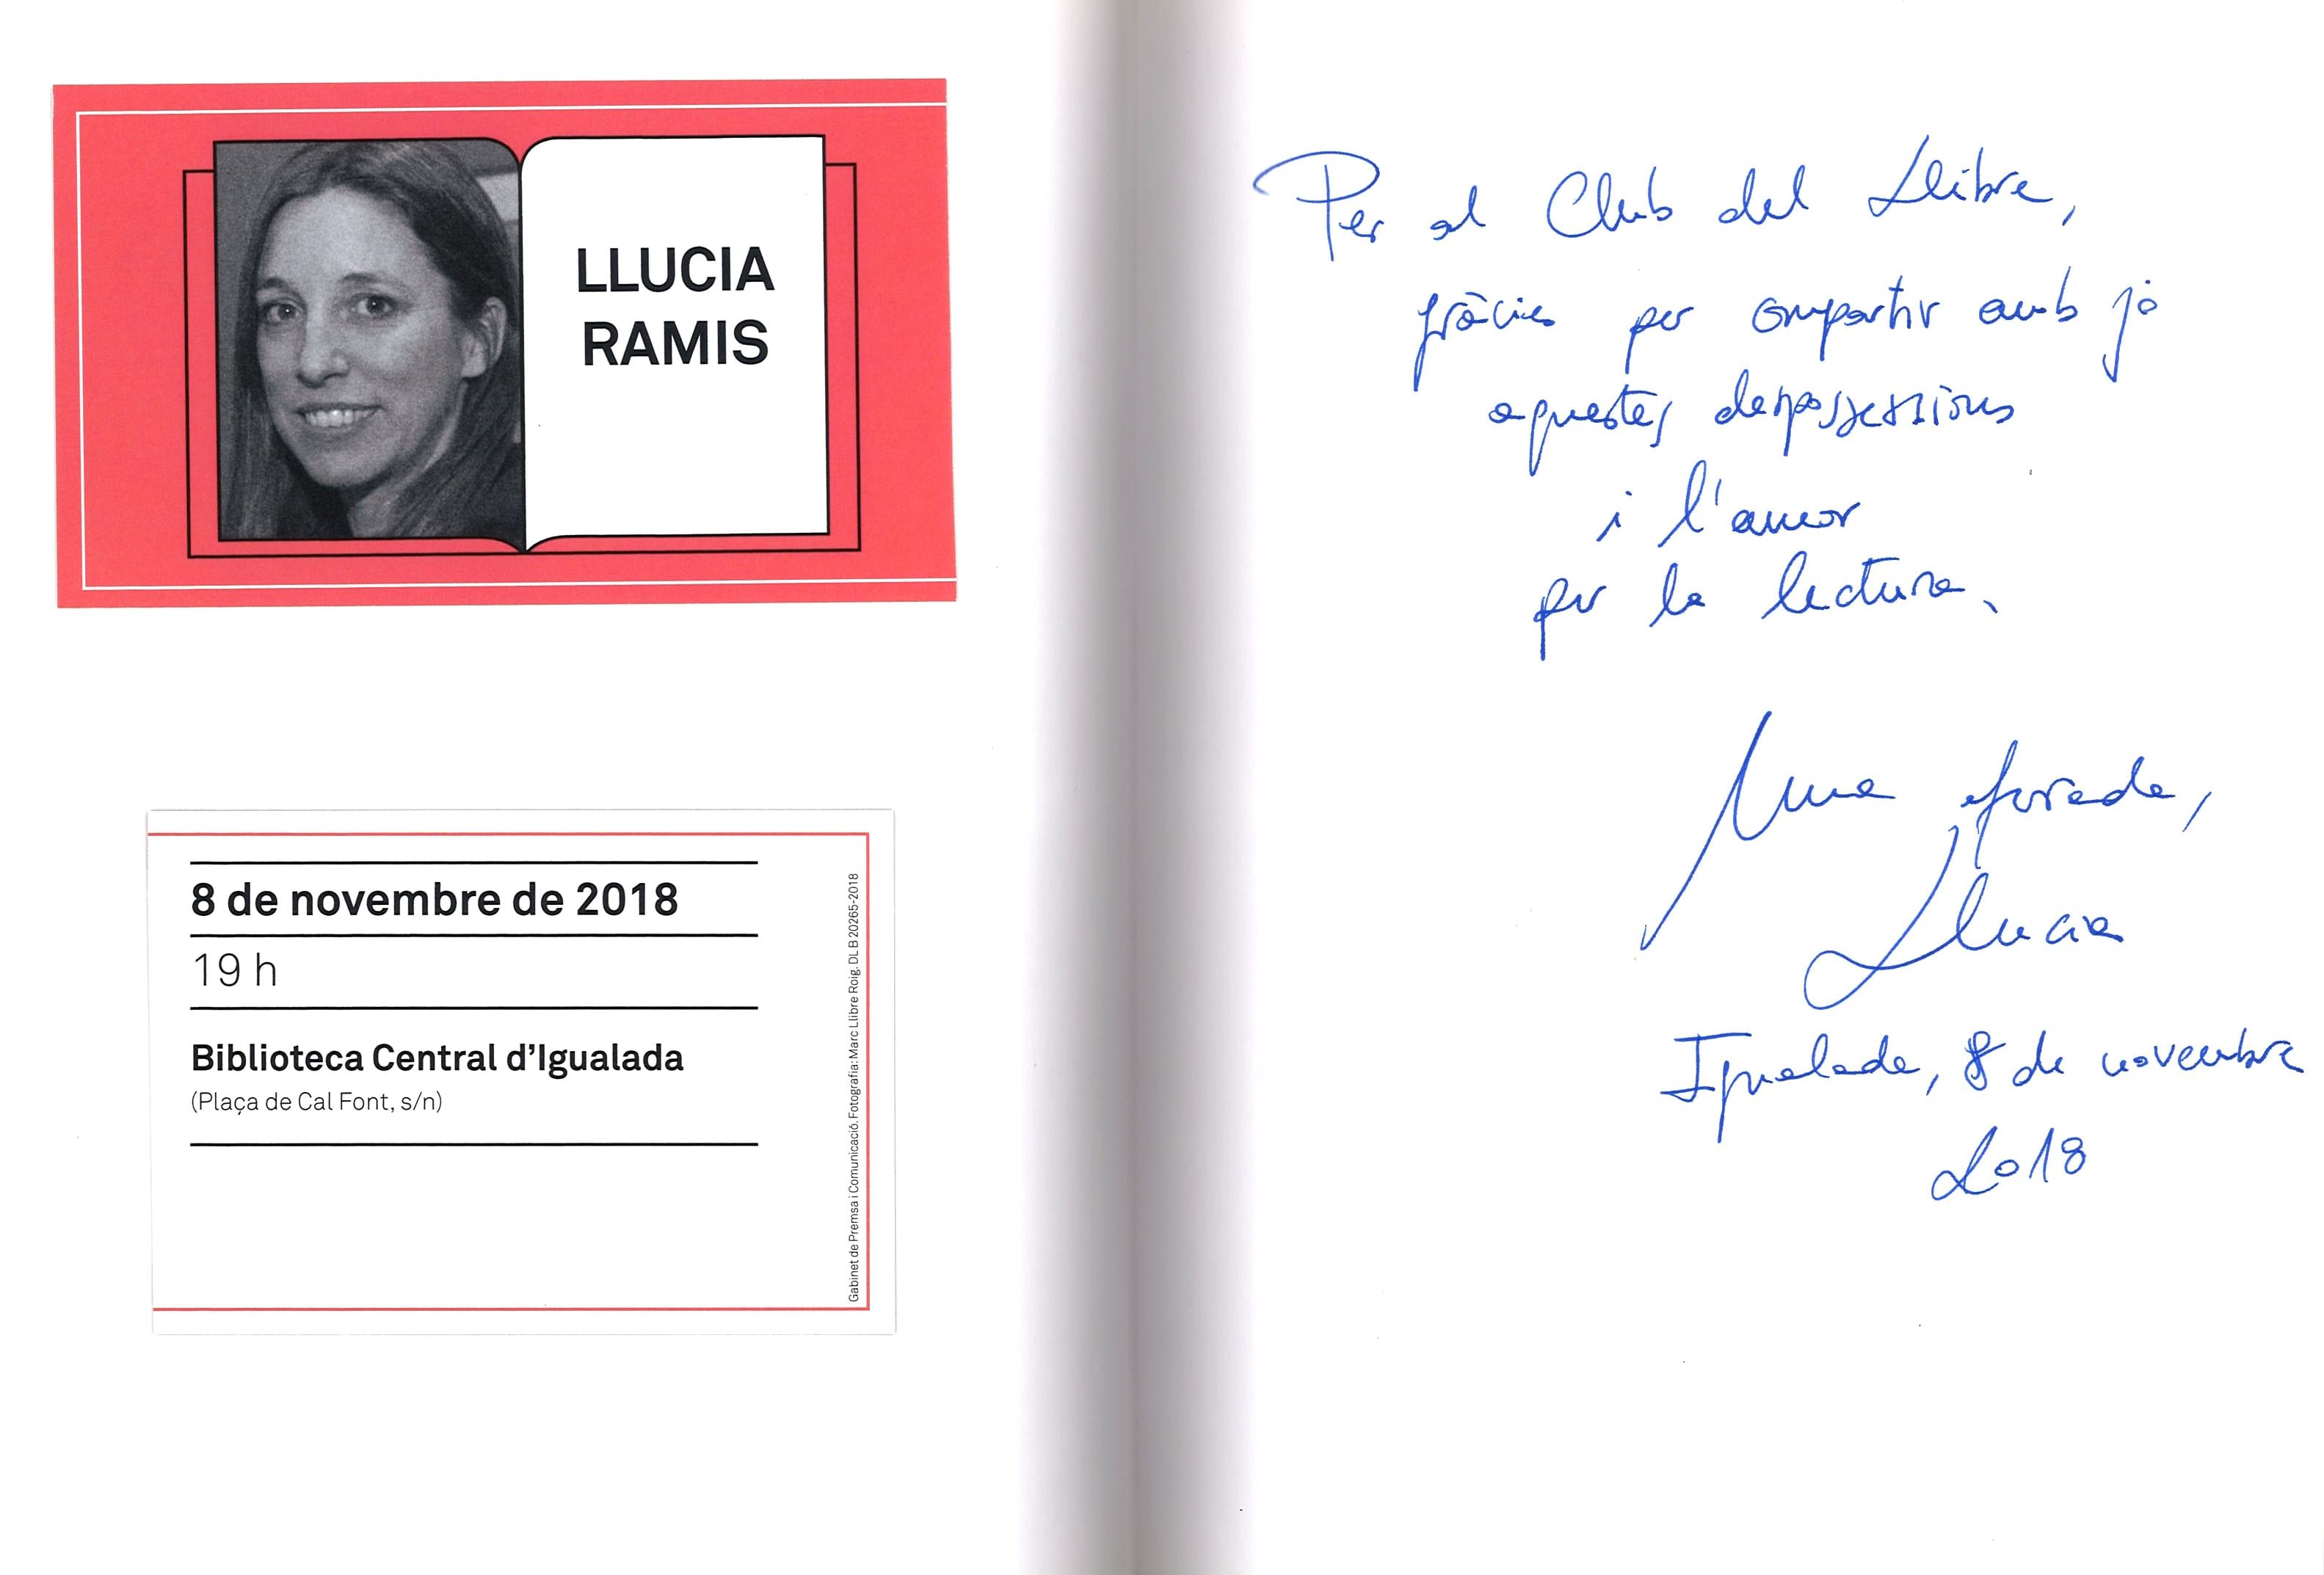 LLUCIA
RAMIS
8 de novembre de 2018
19 h
Biblioteca Central d'Igualada
(Plaça de Cal Font, s/n)
Gabinet de Premsa i Comunicació. Fotografia: Marc Llibre Roig. DL B 20265-2018
Per al Club del Llibre,
gràcies per compartir amb jo
aquestes despossessions
i l'amor
per la lectura.
Una aforada,
Llucia
Igualada, 8 de novembre
2018